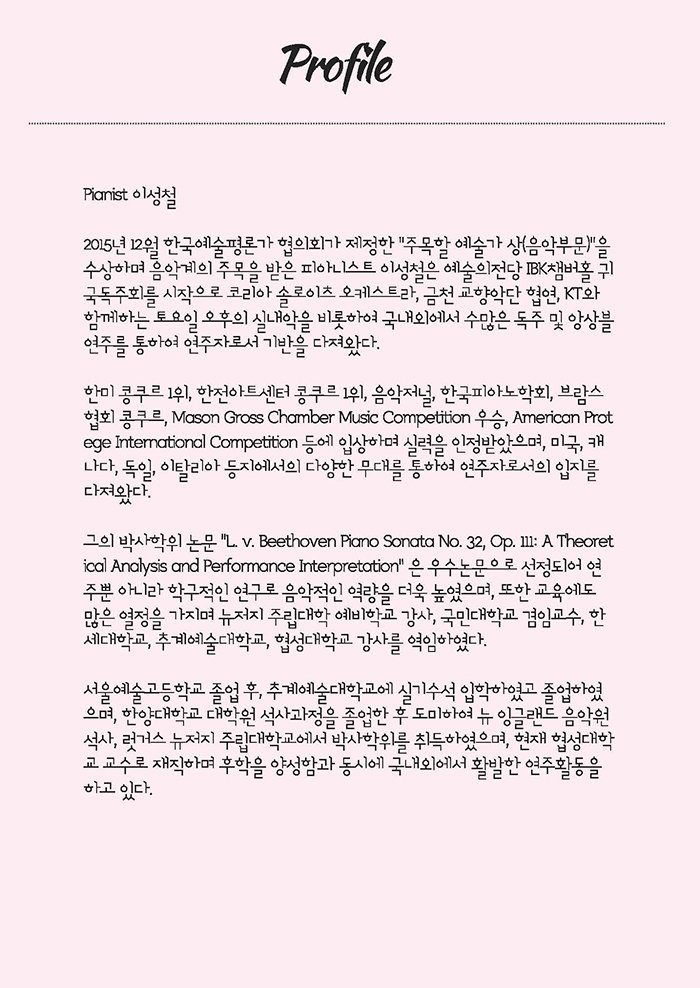 Profile
Pianist 이성철
2015년 12월 한국예술평론가 협의회가 제정한 "주목할 예술가 상(음악부문)"을
수상하며 음악계의 주목을 받은 피아니스트 이성철은 예술의전당 IBK챔버홀 귀
국독주회를 시작으로 코리아 솔로이츠 오케스트라, 금천 교향악단 협연, KT와
함께하는 토요일 오후의 실내악을 비롯하여 국내외에서 수많은 독주 및 앙상블
연주를 통하여 연주자로서 기반을 다져왔다.
한미 콩쿠르 1위, 한전아트센터 콩쿠르 1위, 음악저널, 한국피아노학회, 브람스
협회 콩쿠르, Mason Gross Chamber Music Competition 우승, American Prot
ege International Competition 등에 입상하며 실력을 인정받았으며, 미국, 캐
나다, 독일, 이탈리아 등지에서의 다양한 무대를 통하여 연주자로서의 입지를
다져왔다.
그의 박사학위 논문 "L. v. Beethoven Piano Sonata No. 32, Op. 111: A Theoret
ical Analysis and Performance Interpretation" 은 우수논문으로 선정되어 연
주뿐 아니라 학구적인 연구로 음악적인 역량을 더욱 높였으며, 또한 교육에도
많은 열정을 가지며 뉴저지 주립대학 예비학교 강사, 국민대학교 겸임교수, 한
세대학교, 추계예술대학교, 협성대학교 강사를 역임하였다.
서울예술고등학교 졸업 후, 추계예술대학교에 실기수석 입학하였고 졸업하였
으며, 한양대학교 대학원 석사과정을 졸업한 후 도미하여 뉴 잉글랜드 음악원
석사, 럿거스 뉴저지 주립대학교에서 박사학위를 취득하였으며, 현재 협성대학
교 교수로 재직하며 후학을 양성함과 동시에 국내외에서 활발한 연주활동을
하고 있다.